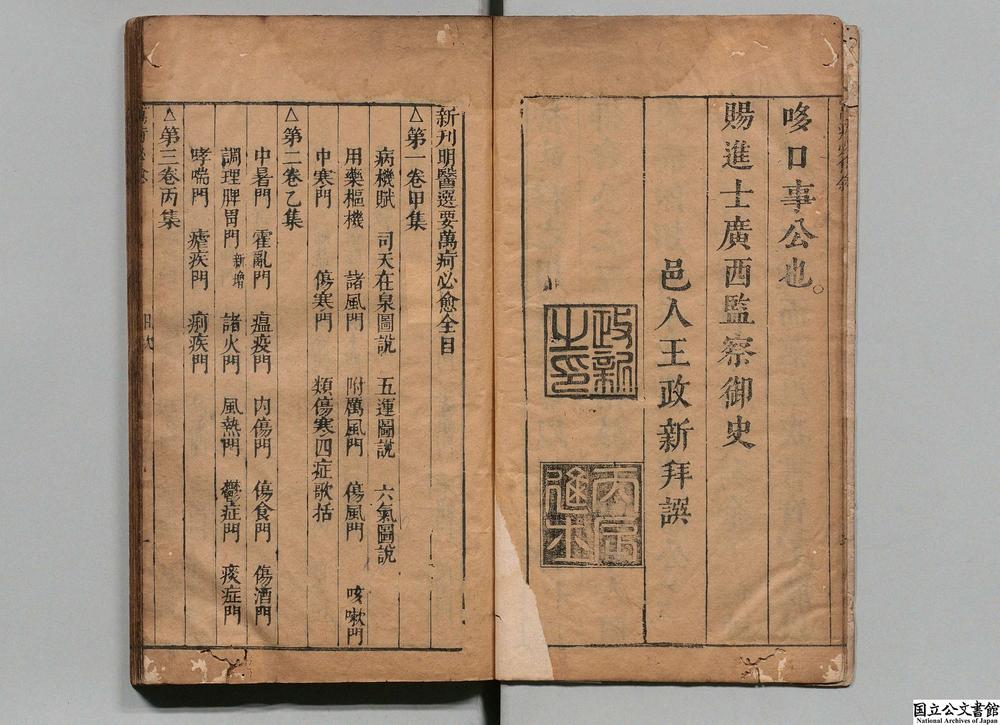 哆口事公也。
賜進士廣西監察御史
邑人王政新拜譔
政新之印
丙辰進士
新刊明醫選要萬疴必愈全目
△第一卷甲集
病機賦 司天在泉圖說 五運圖說 六氣圖說
用藥樞機 諸風門 附厲風門 傷風門 咳嗽門
中寒門 傷寒門 類傷寒四症歌括
△第二卷乙集
中暑門 霍亂門 瘟疫門 內傷門 傷食門 傷酒門
調理脾胃門 新增 諸火門 風熱門 鬱症門 痰症門
哮喘門 瘧疾門 痢疾門
△第三卷丙集
国立公文書館
National Archives of Japan